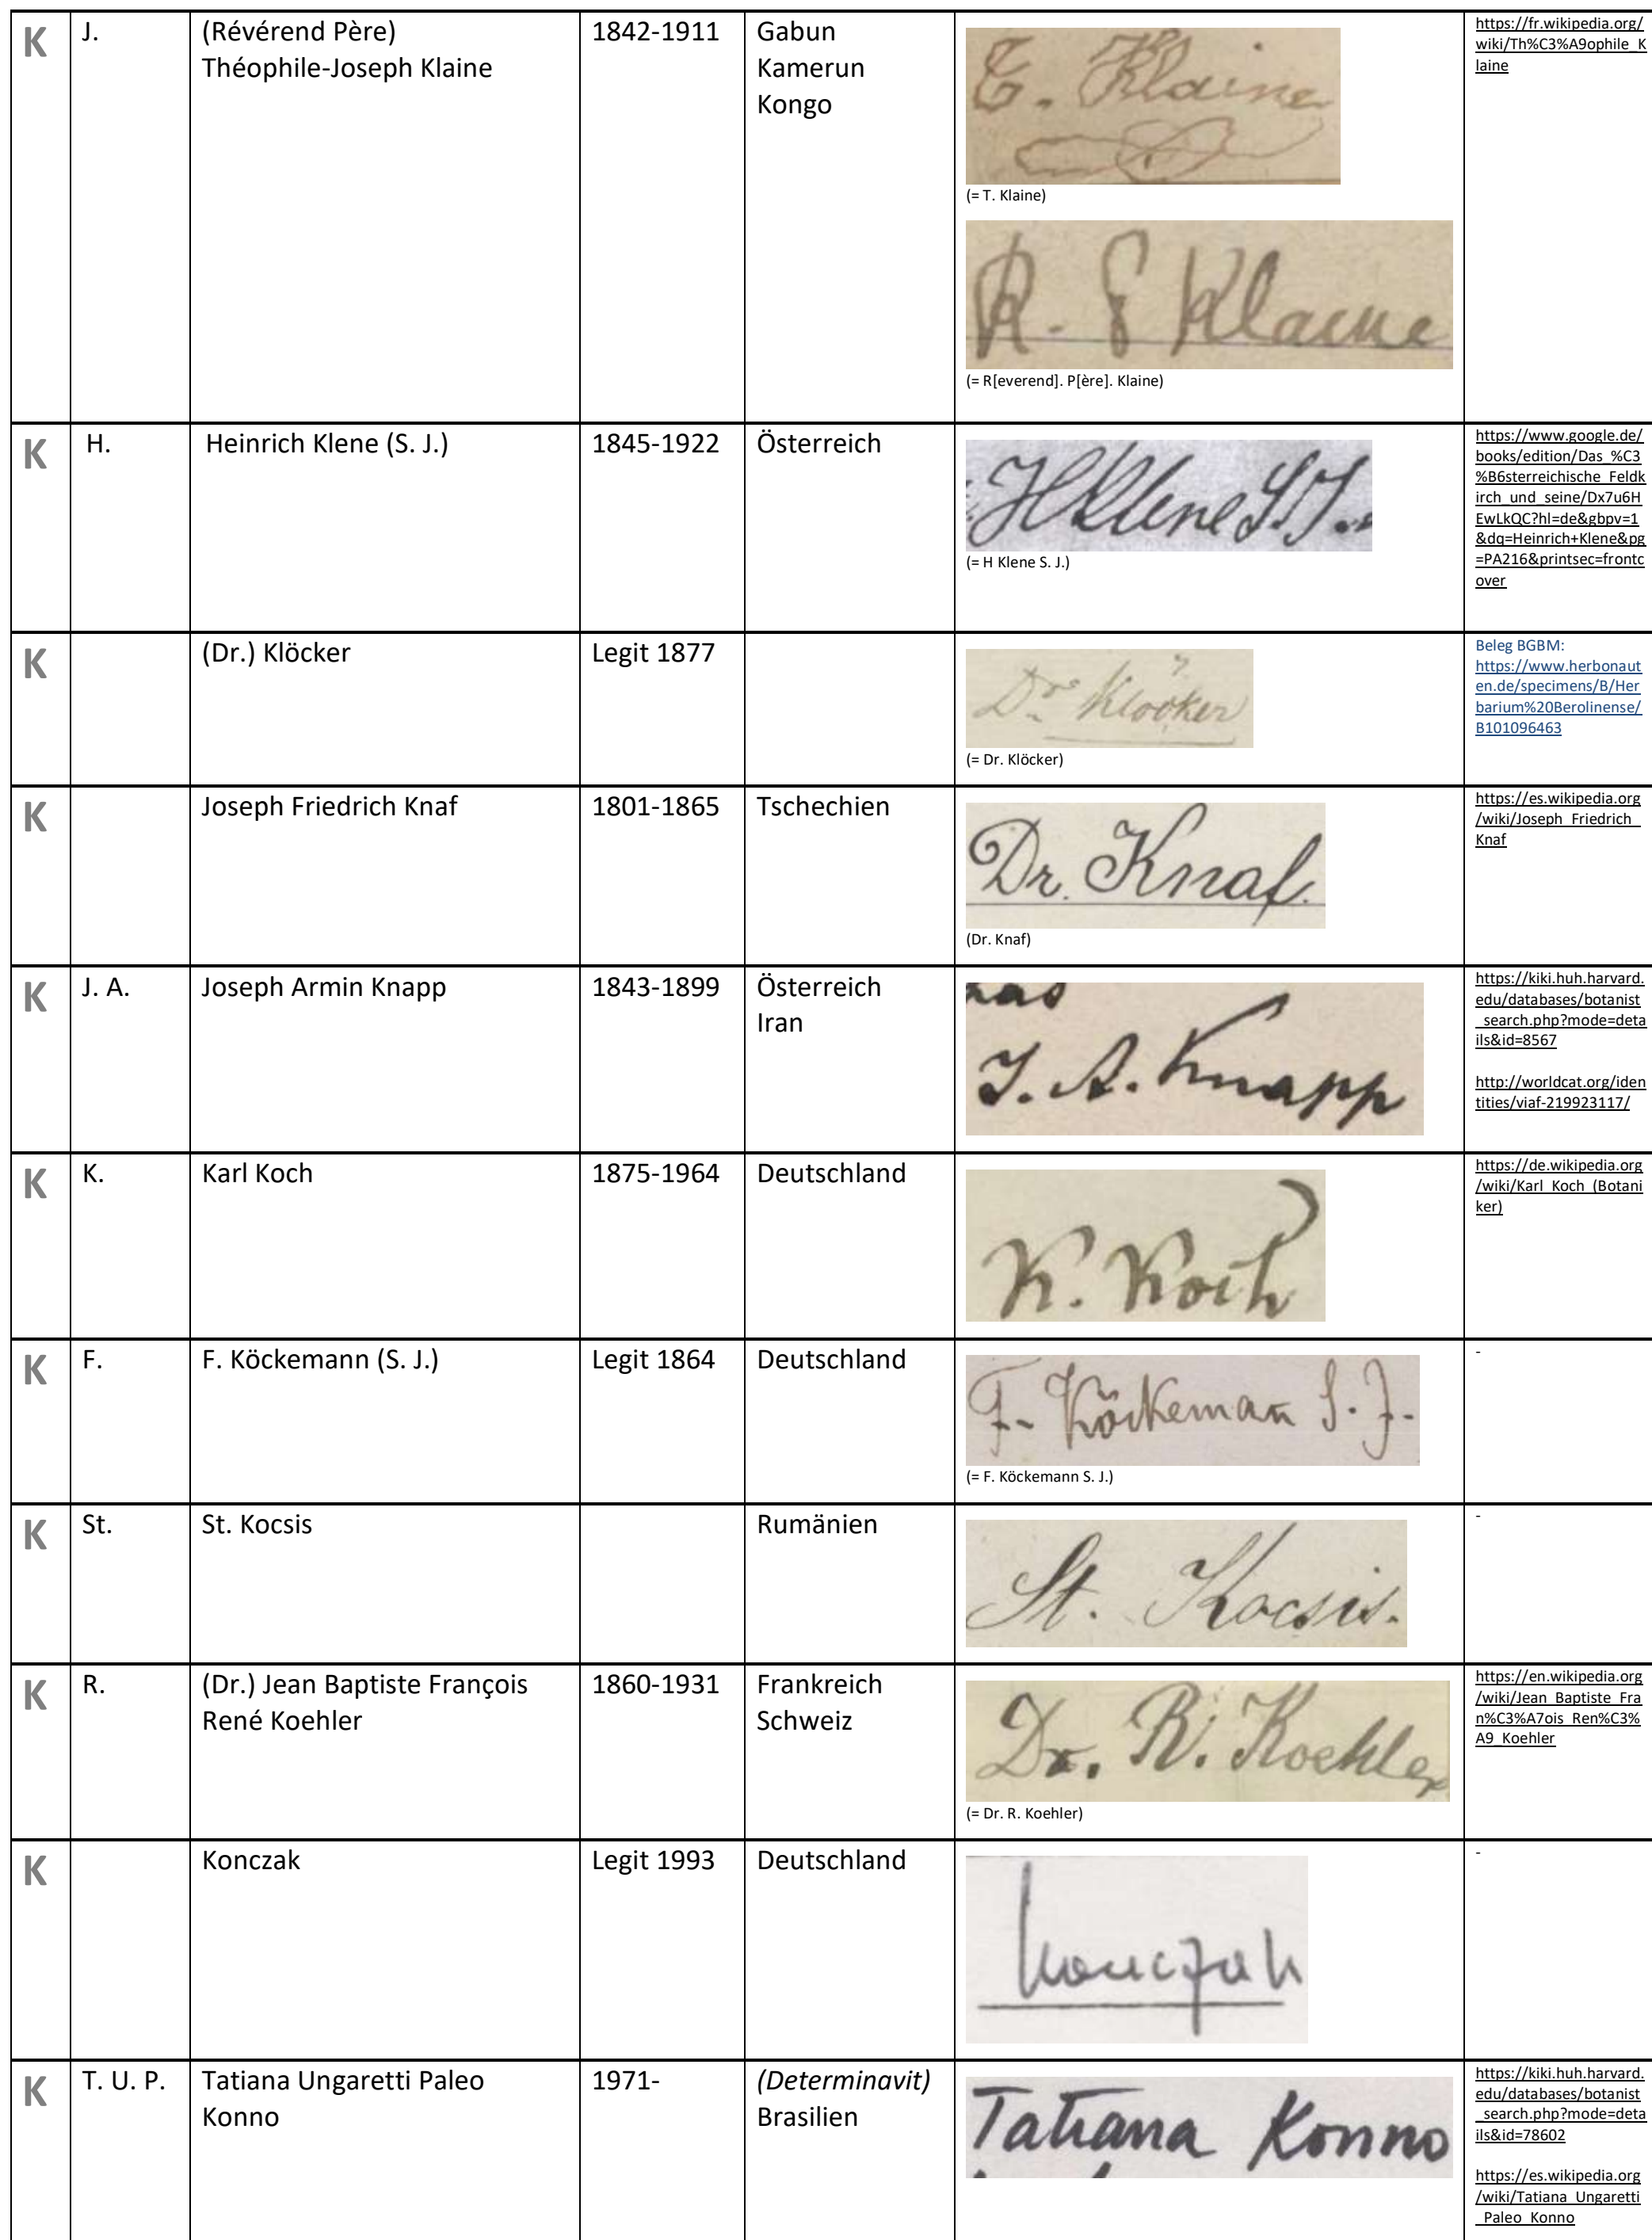 K
J.
(Révérend Père)
Théophile-Joseph Klaine
1842-1911
Gabun
Kamerun
Kongo
T. Klaine
(= T. Klaine)
R. P Klaine
(= R[everend]. P[ère]. Klaine)
https://fr.wikipedia.org/
wiki/Th%C3%A9ophile_K
laine
K
H.
Heinrich Klene (S. J.)
1845-1922
Österreich
H Klene S. J.
(= H Klene S. J.)
https://www.google.de/
books/edition/Das_%C3
%B6sterreichische_Feldk
irch_und_seine/Dx7u6H
EwLkQC?hl=de&gbpv=1
&dq=Heinrich+Klene&pg
=PA216&printsec=frontc
over
K
(Dr.) Klöcker
Legit 1877
Dr. Klöcker
?
(= Dr. Klöcker)
Beleg BGBM:
https://www.herbonaut
en.de/specimens/B/Her
barium%20Berolinense/
B101096463
K
Joseph Friedrich Knaf
1801-1865
Tschechien
Dr. Knaf.
(Dr. Knaf)
https://es.wikipedia.org
/wiki/Joseph_Friedrich_
Knaf
K
J. A.
Joseph Armin Knapp
1843-1899
Österreich
Iran
J. A. Knapp
https://kiki.huh.harvard.
edu/databases/botanist
_search.php?mode=deta
ils&id=8567
http://worldcat.org/iden
tities/viaf-219923117/
K
K.
Karl Koch
1875-1964
Deutschland
K. Koch
https://de.wikipedia.org
/wiki/Karl_Koch_(Botani
ker)
K
F.
F. Köckemann (S. J.)
Legit 1864
Deutschland
F. Köckeman S. J.
(= F. Köckemann S. J.)
-
K
St.
St. Kocsis
Rumänien
St. Kocsis.
-
K
R.
(Dr.) Jean Baptiste François
René Koehler
1860-1931
Frankreich
Schweiz
Dr. R. Koehler
(= Dr. R. Koehler)
https://en.wikipedia.org
/wiki/Jean_Baptiste_Fra
n%C3%A7ois_Ren%C3%
A9_Koehler
K
Konczak
Legit 1993
Deutschland
Konczak
-
K
T. U. P.
Tatiana Ungaretti Paleo
Konno
1971-
(Determinavit)
Brasilien
Tatiana Konno
https://kiki.huh.harvard.
edu/databases/botanist
_search.php?mode=deta
ils&id=78602
https://es.wikipedia.org
/wiki/Tatiana_Ungaretti
_Paleo_Konno